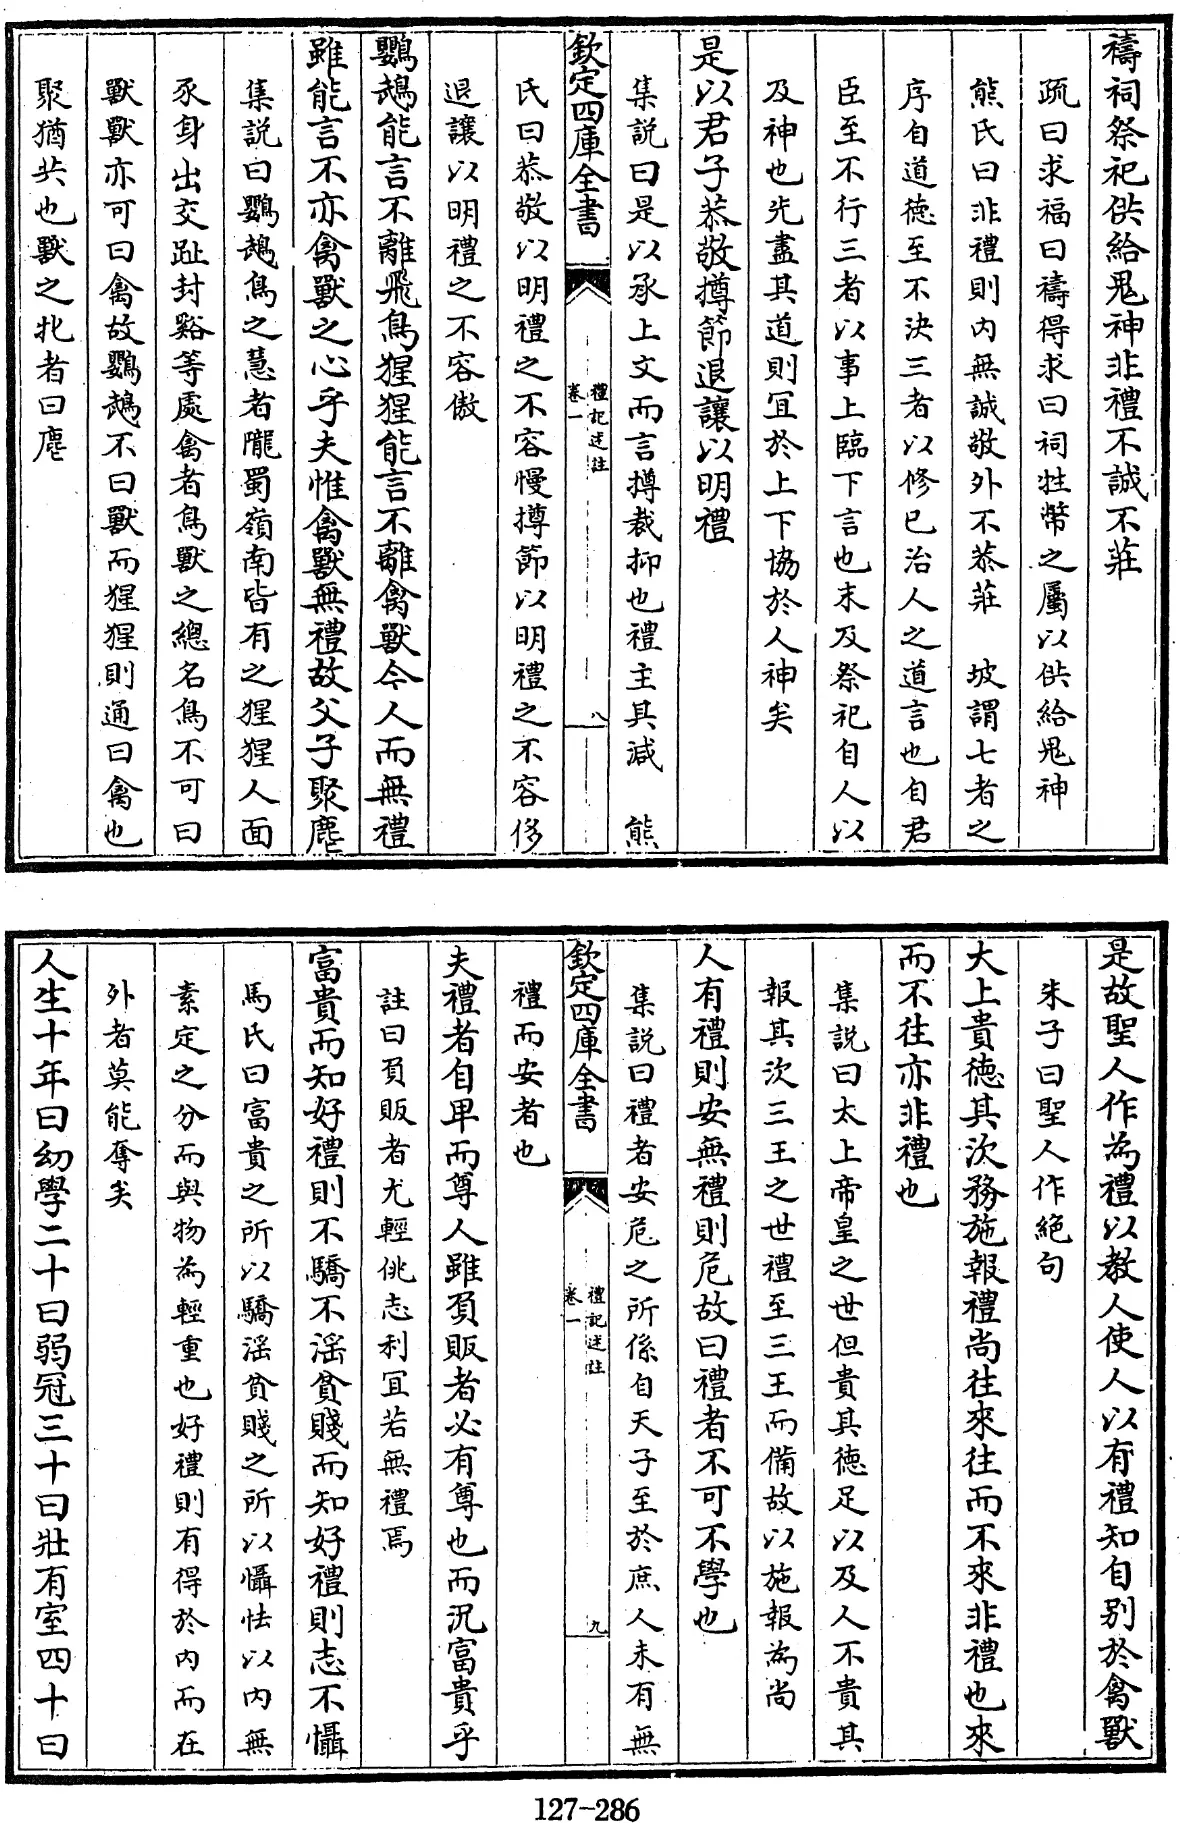 禱祠祭祀供給鬼神非禮不誠不莊
疏曰求福曰禱得求曰祠牲幣之屬以供給鬼神
熊氏曰非禮則内無誠敬外不恭莊　坡謂七者之
序自道德至不決三者以修已治人之道言也自君
臣至不行三者以事上臨下言也末及祭祀自人以
及神也先盡其道則宜於上下協於人神矣
是以君子恭敬撙節退讓以明禮
集説曰是以承上文而言撙裁抑也禮主其減　熊
欽定四庫全書
禮記述註
卷一
八
氏曰恭敬以明禮之不容慢撙節以明禮之不容侈
退讓以明禮之不容傲
鸚鵡能言不離飛鳥猩猩能言不離禽獸今人而無禮
雖能言不亦禽獸之心乎夫惟禽獸無禮故父子聚麀
集説曰鸚鵡鳥之慧者隴蜀嶺南皆有之猩猩人面
豕身出交趾封谿等處禽者鳥獸之總名鳥不可曰
獸獸亦可曰禽故鸚鵡不曰獸而猩猩則通曰禽也
聚猶共也獸之牝者曰麀
是故聖人作為禮以教人使人以有禮知自别於禽獸
朱子曰聖人作絶句
大上貴德其次務施報禮尚往來往而不來非禮也來
而不往亦非禮也
集説曰太上帝皇之世但貴其德足以及人不貴其
報其次三王之世禮至三王而備故以施報為尚
人有禮則安無禮則危故曰禮者不可不學也
集説曰禮者安危之所係自天子至於庶人未有無
欽定四庫全書
禮記述註
卷一
九
禮而安者也
夫禮者自卑而尊人雖負販者必有尊也而況富貴乎
註曰負販者尤輕佻志利宜若無禮焉
富貴而知好禮則不驕不淫貧賤而知好禮則志不懾
馬氏曰富貴之所以驕淫貧賤之所以懾怯以内無
素定之分而與物為輕重也好禮則有得於内而在
外者莫能奪矣
人生十年曰幼學二十曰弱冠三十曰壯有室四十曰
127-286